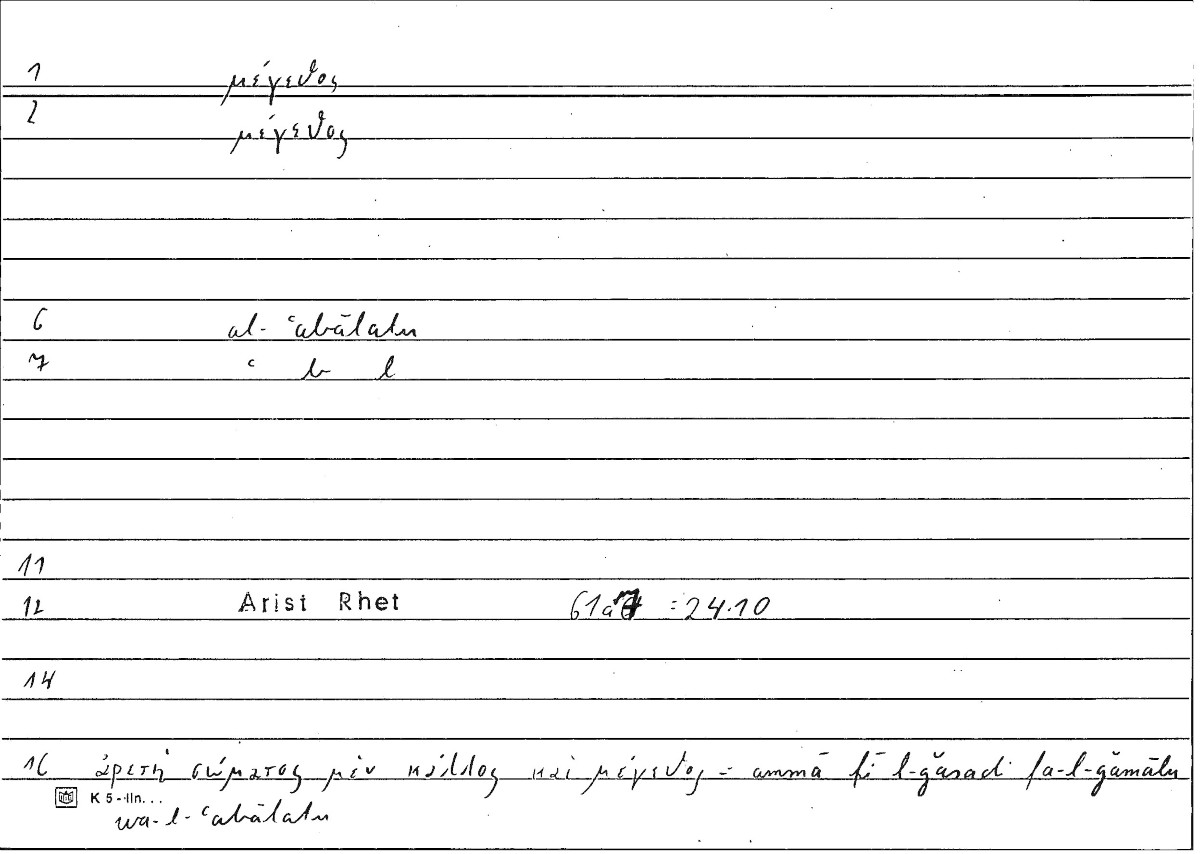 1 μέγεθος
2 μέγεθος
6 al- ʿabālatu
7 ʿ b l
11
12 Arist Rhet 61a7 = 24.10
14
16 ἀρετὴ σώματος μὲν κάλλος καὶ μέγεθος = ammā fī l-ǧasadi fa-l-ǧamālu
K 5--lln...
wa-l-ʿabālatu